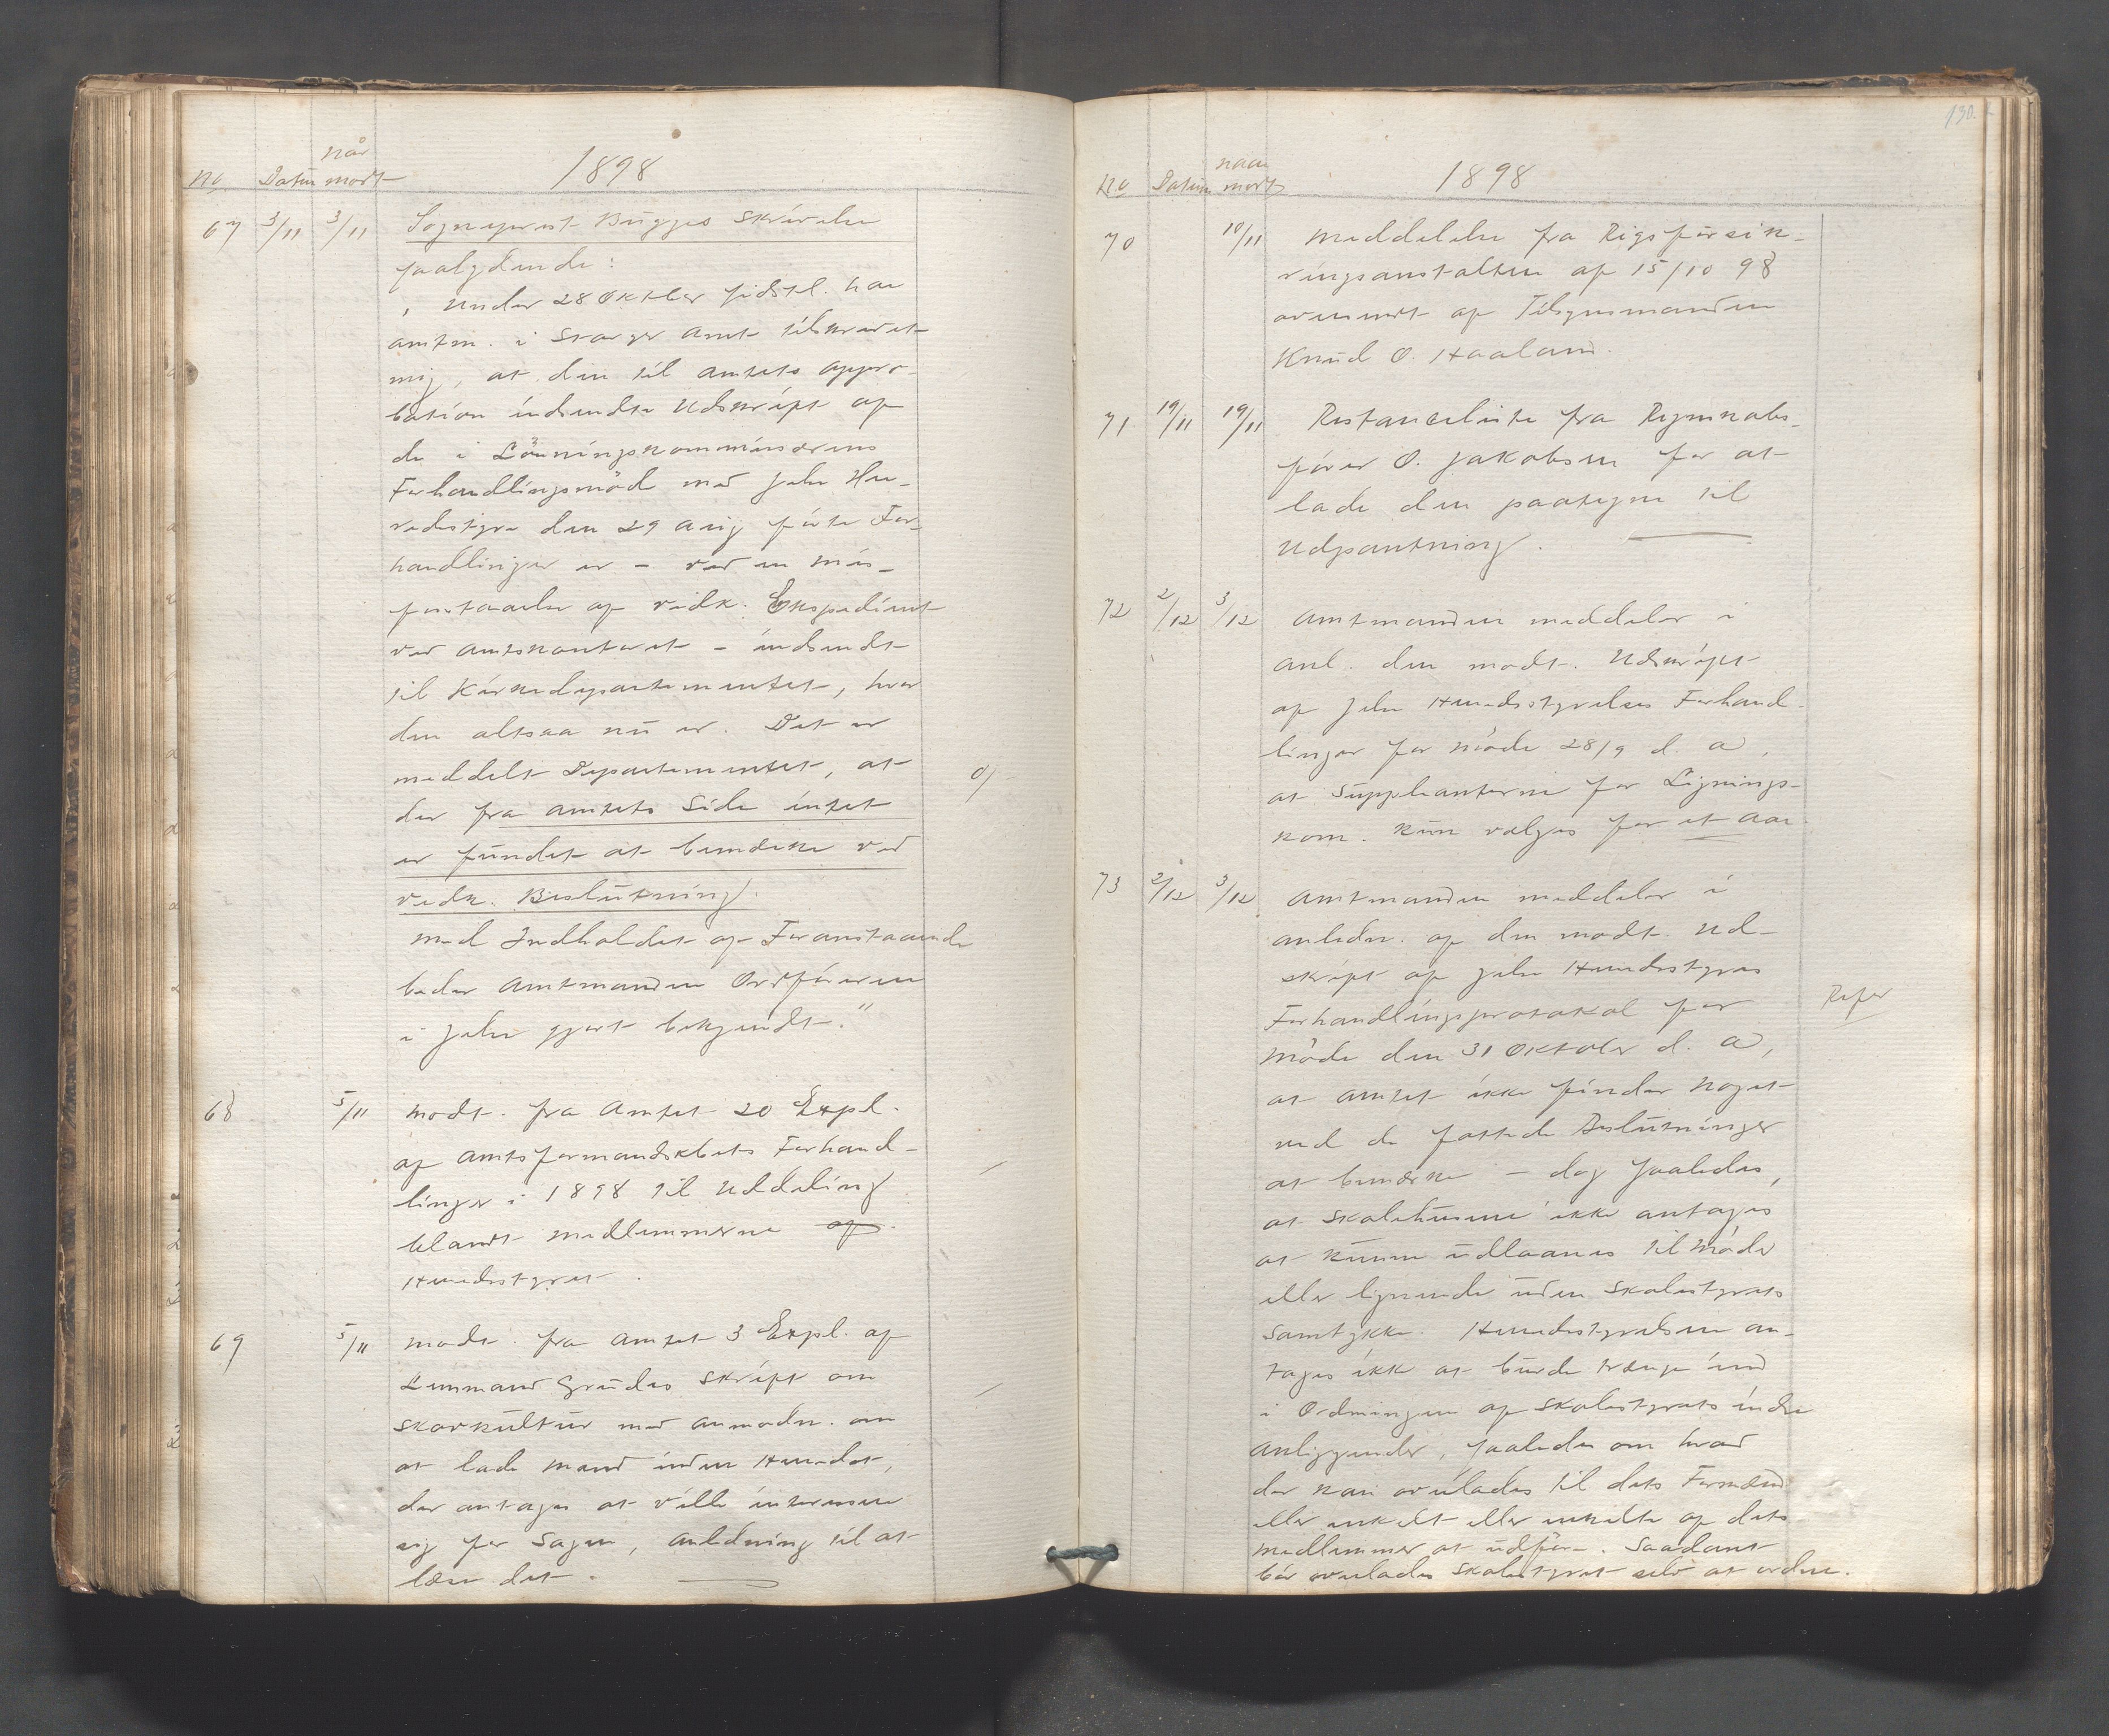 1898
No Datum når modt
67 3/11 3/11 Sogneprest Bugges Skrivelse
saalydende:
"Under 28 Oktber sidstl. har
amtm. i Stav^ger Amt tilskrevet
mig, at den til Amtets appro-
bation indsendte Udskript af
de i Lönningskommissærens
Forhandlingsmöd med Jelse He-
redsstyre den 29 Aug förte For-
handlinger er – ved en mis-
forstaaelse af vedk. Ekspedient
ved Amtskontoret – indsendt
til Kirkedepartementet, hvor
den altsaa nu er. Det er
meddelt Departementet, at
der fra Amtets Side intet
er fundet at bemærke ved
vedk. Beslutning.
Med Indholdet af Foranstaaende
beder Amtmanden Ordföreren
i Jelse gjort bekjendt."
68 5/11 Modt. fra Amtet 20 Expl.
af Amtsformandskbets Forhand-
linger i 1898 til Uddeling
blandt Medlemmerne af
Heredsstyret.
69 5/11 Modt. fra Amtet 3 Expl. af
Lensmand Grudes Skript om
Skovkultur med anmodn. om
at lade Mænd inden Heredet,
der antages at ville interessere
sig for Sagen, anledning til at
læse det.
130.
1898
No Datum naar modt
70 10/11 Meddelelse fra Rigsforsik-
ringsanstalten af 15/10 98
oversendt af Tilsynsmanden
Knud O. Haaland.
71 19/11 19/11 Restanceliste fra Regnskabs-
förer O. Jakobsen for at
lade den paategne til
Udpantning.
72 2/12 3/12 Amtmanden meddeler i
anl. den modt. Udskript
af Jelse Heredsstyrelses Forhand-
linger for Möde 28/9 d. A.
at Suppleanterne for Lignings-
kom. kun vælges for et Aar.
73 2/12 3/12 Amtmanden meddeler i
anledn. af den modt. Ud-
skript af Jelse Heredsstyres
Forhandlingsprotokol for
Möde den 31 Oktober d. A,
at Amtet ikke finder noget
ved de fattede Beslutninger
at bemærke – dog saaledes,
at Skolehusene ikke antages
at kunne udlaanes til Möder
eller lignende uden Skolestyrets
Samtykke. Heredsstyrelsen an-
tages ikke at burde trænge ind
i Ordningen af Skolestyrets indre
Anliggender, saaledes om hvad
der kan overlades til dets Formænd
eller enkelt eller enkelte af dets
Medlemmer at udföre. Saadant
bör overlades Skolestyret selv at ordne.
Refer